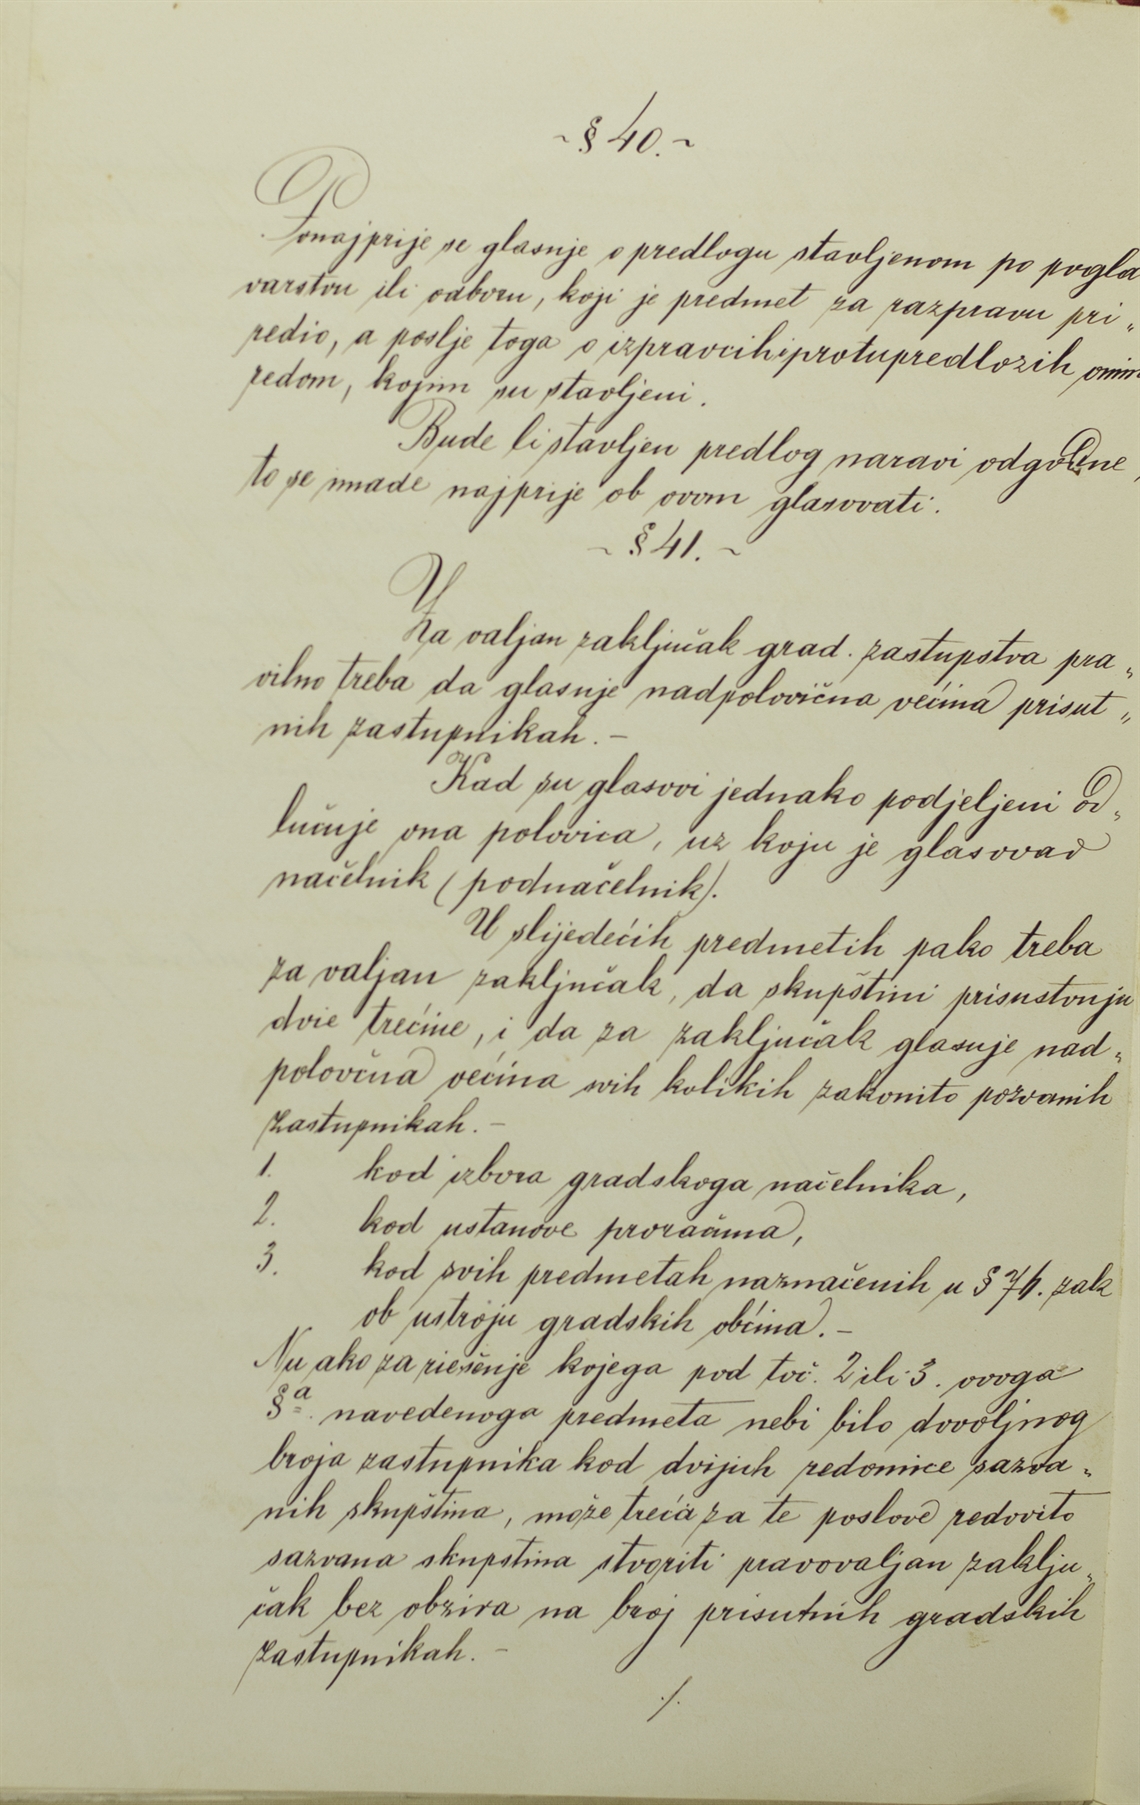 ~ § 40. ~
Ponajprije se glasuje o predlogu stavljenom po pogla
varstvu ili odboru, koji je predmet za razpravu pri„
redio, a poslje toga o izpravcih i protupredlozih onim
redom, kojim su stavljeni.
Bude li stavljen predlog naravi odgodne,
to se imade najprije ob ovom glasovati.
~ § 41. ~
Za valjan zaključak grad. zastupstva pra„
vilno treba da glasuje nadpolovična većina prisut„
nih zastupnikah. –
Kad su glasovi jednako podjeljeni od„
lučuje ona polovica, uz koju je glasovao
načelnik (podnačelnik).
U slijedećih predmetih pako treba
za valjan zaključak, da skupštini prisustvuju
dvie trećine, i da za zaključak glasuje nad„
polovčna većina svih kolikih zakonito pozvanih
zastupnikah. –
1. kod izbora gradskoga načelnika,
2. kod ustanove proračuna,
3. kod svih predmetah naznačenih u § 76. zak
ob ustroju gradskih obćina. –
Nu ako za riešenje kojega pod toč. 2 ili 3. ovoga
§a navedenoga predmeta nebi bilo dovoljnog
broja zastupnika kod dvijuh redomice sazva„
nih skupština, može treća za te poslove redovito
sazvana skupština stvoriti pravovaljan zaklju„
čak bez obzira na broj prisutnih gradskih
zastupnikah. –
./.